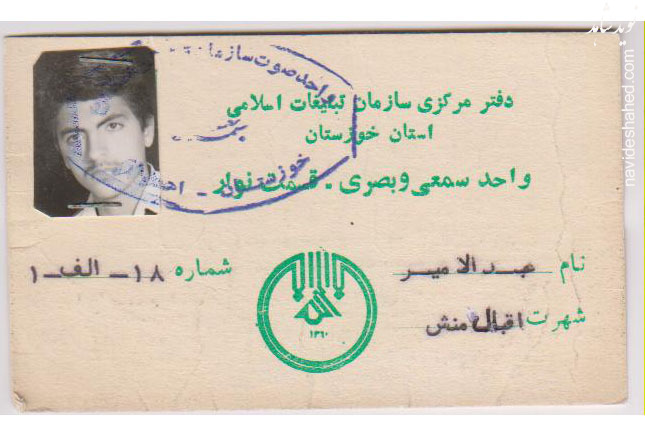 نوید شاهد
navideshahed.com
واحد صوت سازمان
خوزستان - اهواز
دفتر مرکزی سازمان تبلیغات اسلامی
استان خوزستان
واحد سمعی و بصری - قسمت نوار
نام عبدالامیر
شماره ۱۸ - الف - ۱
شهرت اقبال منش
۱۳۶۰